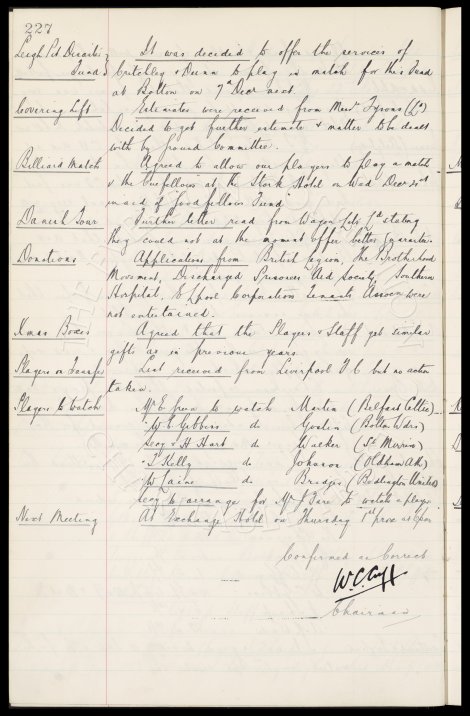 227
Leigh Pit Disaster Fund
It was decided to offer the services of
Critchley & Dunn to play in match for this Fund
at Bolton on 7th Decr next.
Covering Lift
Estimates were received from Messrs Tysons (Ld)
Decided to get further estimate & matter to be dealt
with by ground Committee.
Billiard Match
Agreed to allow our players to play a match
at the Stork Hotel on Wed Decr
in aid of Goodfellows Fund
Danish Tour
Further letter read from Wagon Lits Ld stating
they could not at the moment offer better guarantee.
Donations
Applications from British Legion, The Brotherhood
Movement, Discharged Prisoners Aid Society, Southern
Hospital, & L'pool Corporation Tenants Assocn were
not entertained.
Xmas Boxes
Agreed that the Players & Staff get similar
gifts as in previous years.
Players on Transfer
List received from Liverpool F C but no action
taken.
Players to Watch
Mr E Green to watch Martin (Belfast Celtic)
" W C Gibbins do (Bolton Wdrs)
Secy & H Hart do Walker (St Mirren)
" T Kelly do Johnson (Oldham Ath)
W Laine do Bridges (Bedlington United)
Secy to arrange for Mr to watch a player
Next Meeting
At Exchange Hotel on Thursday 1st prox at 6pm
Confirmed as Correct
W.C. Cuff
Chairman